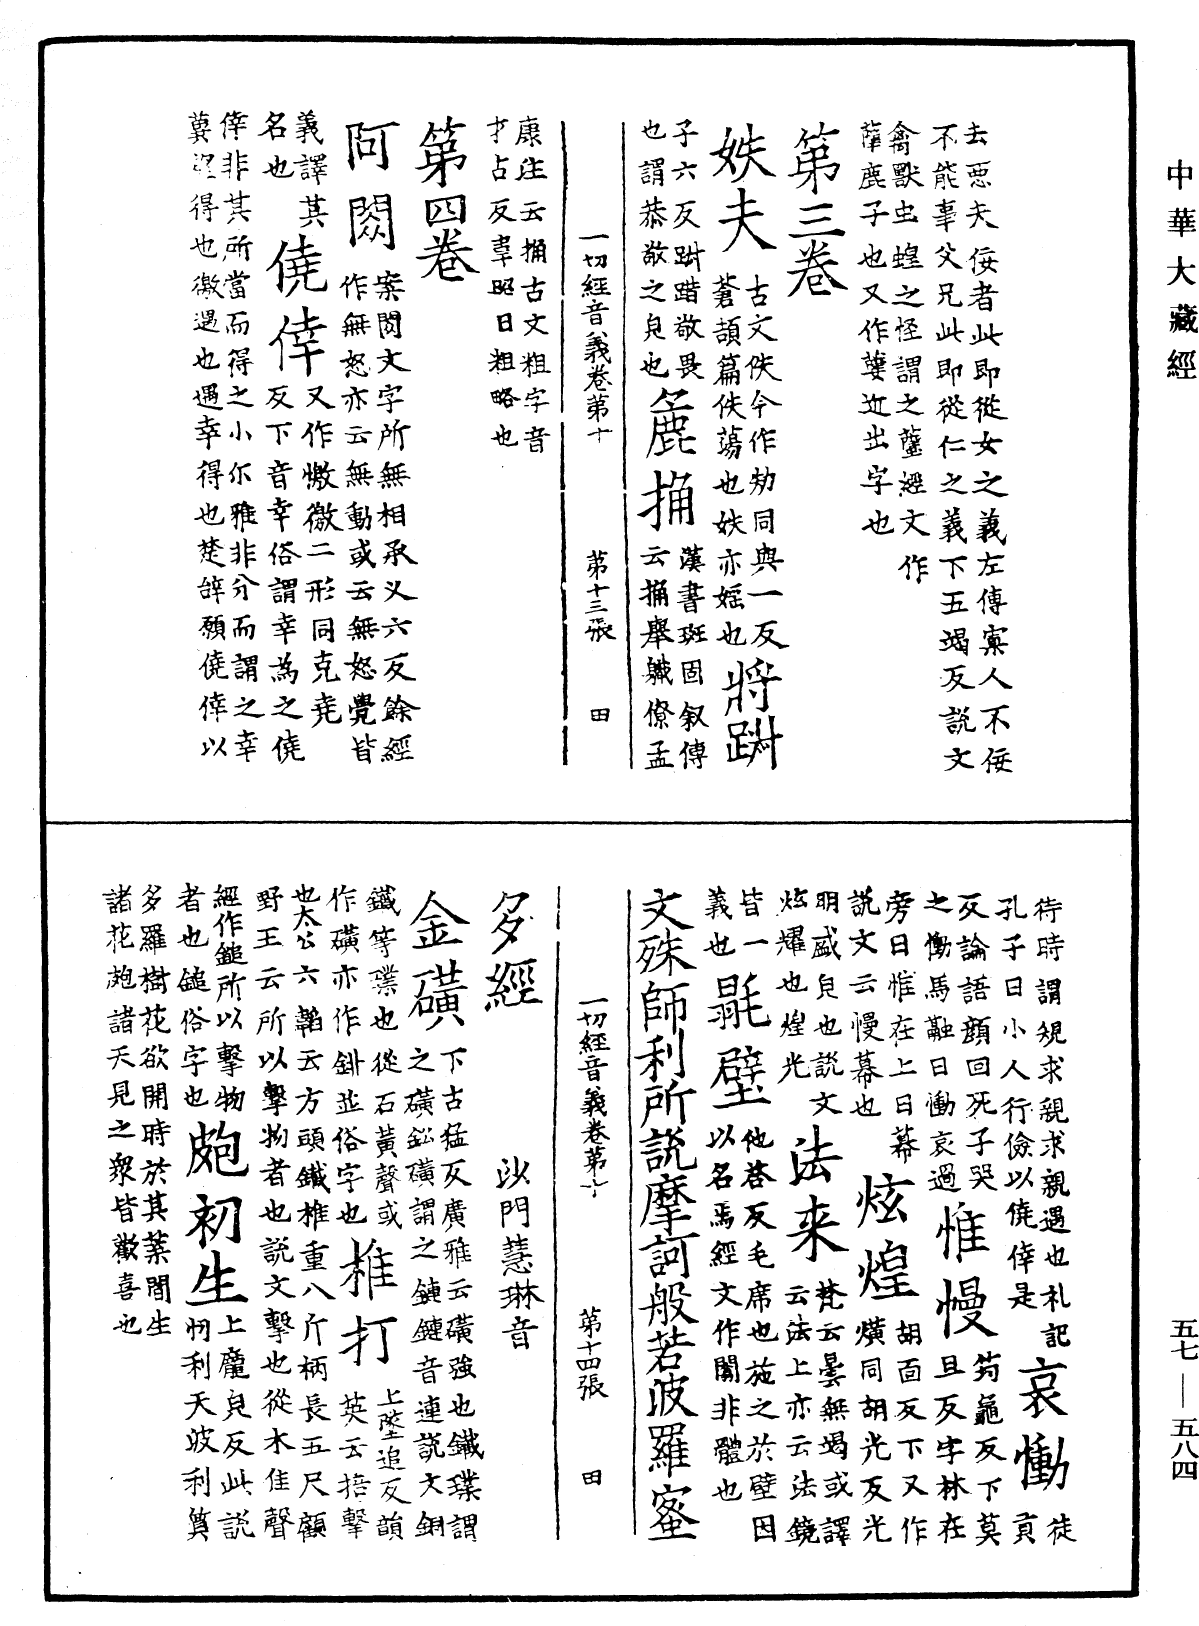 中華大藏經
去惡夫佞者此即從女之義左傳寡人不佞
不能事父兄此即從仁之義下五竭反説文
禽獸虫蝗之怪謂之蠥經文作
孽鹿子也又作㜸近出字也
第三卷
妷夫 古文佚今作劮同與一反
蒼頡篇佚蕩也妷亦婬也 將踧
子六反踧踖敬畏
也謂恭敬之皃也 麁捔 漢書班固叙傳
云捔舉軄僚孟
一切經音義卷第十 第十三張 田
康注云捔古文粗字音
才古反韋昭曰粗略也
第四卷
阿閦 案閦文字所無相承义六反餘經
作無怒亦云無動或云無怒覺皆
義譯其
名也 僥倖 又作憿徼二形同克堯
反下音幸俗謂幸為之僥
倖非其所當而得之小尒雅非分而謂之幸
冀望得也徼遇也遇幸得也楚辝願僥倖以
待時謂規求親求親遇也礼記
孔子曰小人行儉以僥倖是 哀慟 徒
貢
反論語顔回死子哭
之慟馬融曰慟哀過 惟慢 荀龜反下莫
旦反字林在
旁曰惟在上曰幕
説文云慢幕也 炫煌 胡面反下又作
熿同胡光反光
明盛皃也説文
炫耀也煌光 法来 梵云曇無竭或譯
云法上亦云法鏡
皆一
義也 毾壁 他荅反毛席也施之於壁因
以名焉經文作闒非體也
文殊師利所説摩訶般若波羅蜜
一切經音義卷第十 第十四張 田
多經 沙門慧琳音
金礦 下古猛反廣雅云礦強也鐵璞謂
之礦鉱礦謂之鏈鏈音連説文銅
鐵等璞也從石黃聲或
作磺亦作鉼並俗字也 椎打 上墜追反韻
英云掊擊
也太公六韜云方頭鐵椎重八斤柄長五尺顧
野王云所以擊物者也説文擊也從木隹聲
經作鎚所以擊物
者也鎚俗字也 皰初生 上龐皃反此説
忉利天波利質
多羅樹花欲開時於其葉間生
諸花皰諸天見之衆皆歡喜也
五七—五八四